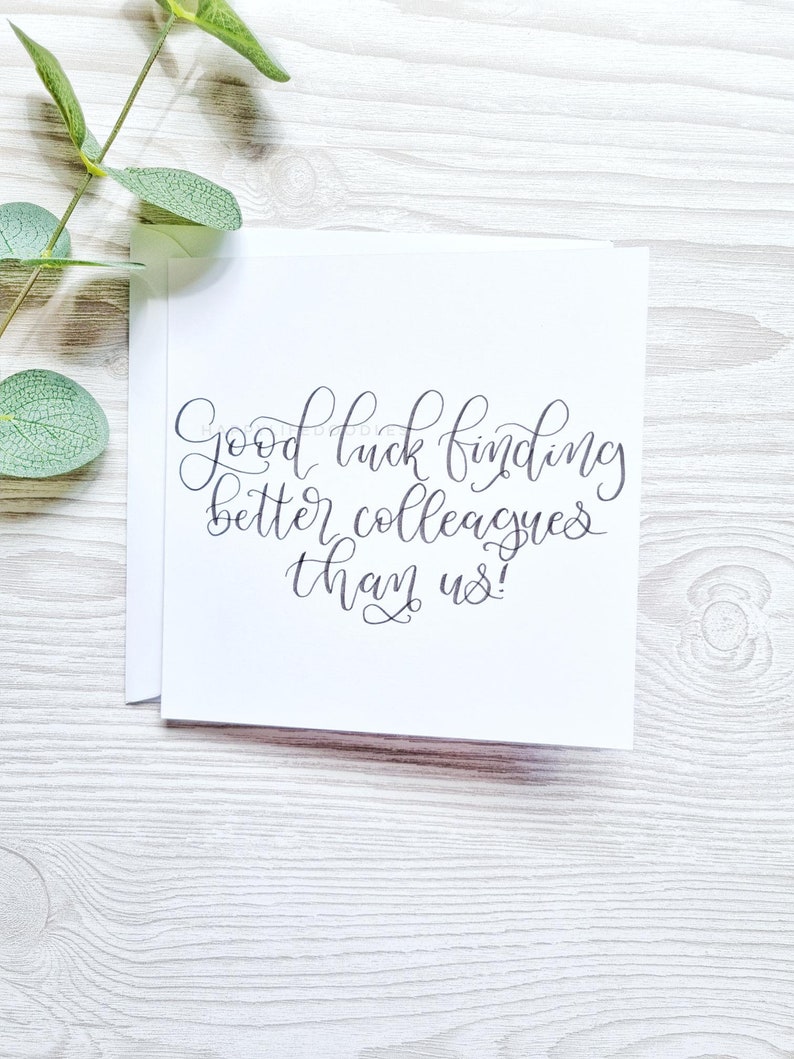 Good luck finding
HAPPYLIFEDOODLES
better colleagues
than us!